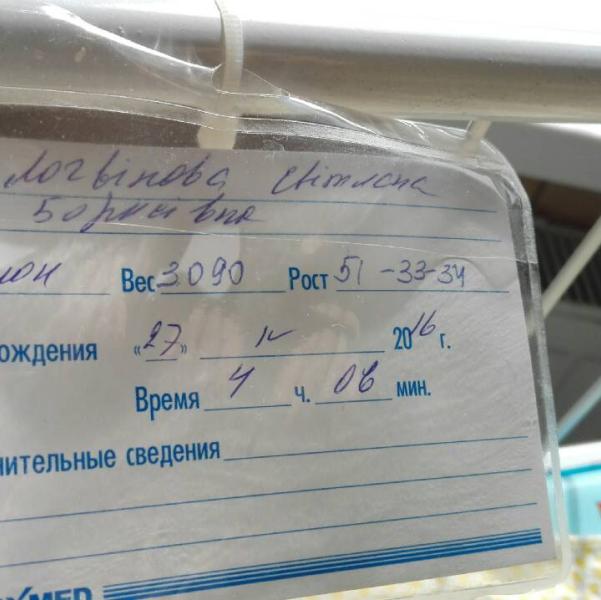 Логвінова Світлана
Борисівна
Вес 3090 Рост 51-33-34
ождения «27» IV 2016 г.
Время 4 ч. 06 мин.
нительные сведения
MED